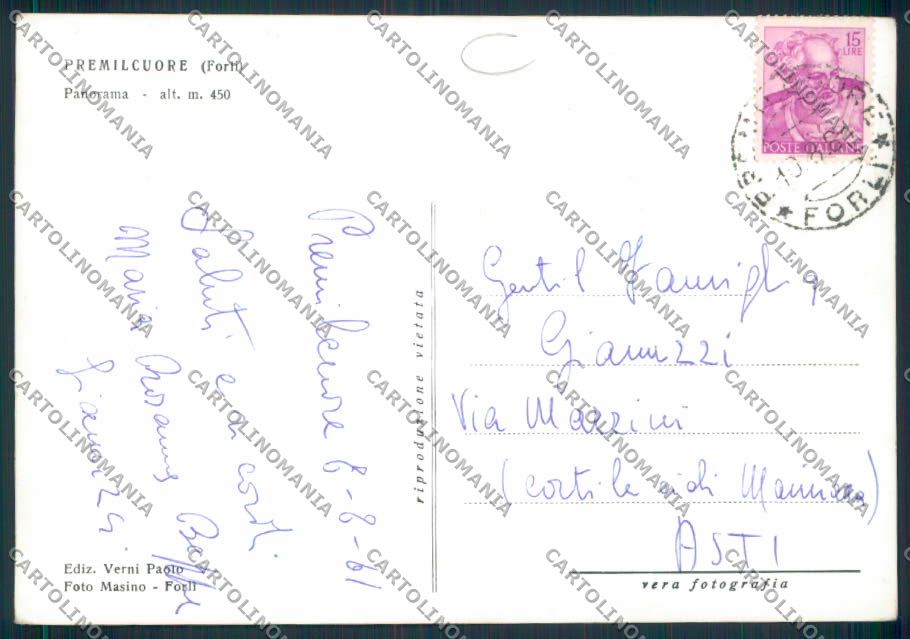 PREMILCUORE (Forlì)
Panorama - alt. m. 450
15
LIRE
POSTE ITALIANE
FORLI
Premilcuore 8-8-61
Saluti cordi.
Maria Rosanna Beppe
Gianuzzi.
riproduzione vietata
Gentil Famiglia
Gianuzzi
Via Mazzini
(cortile
ASTI
Ediz. Verni Paolo
Foto Masino - Forlì
vera fotografia
CARTOLINOMANIA